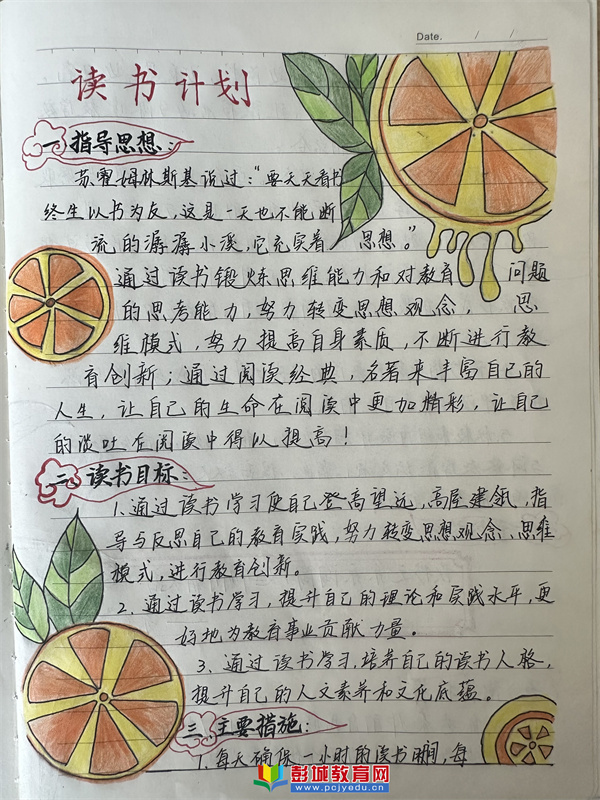 Date. / /
读书计划
一、指导思想：
苏霍姆林斯基说过："要天天看书
终生以书为友，这是一天也不能断
流的潺潺小溪，它充实着 思想。"
通过读书锻炼思维能力和对教育 问题
的思考能力，努力转变思想观念， 思
维模式，努力提高自身素质，不断进行教
育创新；通过阅读经典，名著来丰富自己的
人生，让自己的生命在阅读中更加精彩，让自己
的谈吐在阅读中得以提高！
二、读书目标：
1、通过读书学习使自己登高望远，高屋建瓴，指
导与反思自己的教育实践，努力转变思想观念、思维
模式，进行教育创新。
2、通过读书学习，提升自己的理论和实践水平，更
好地为教育事业贡献力量。
3、通过读书学习，培养自己的读书人格，
提升自己的人文素养和文化底蕴。
三、主要措施：
1、每天确保一小时的读书时间，每
彭城教育网
www.pcjyedu.cn